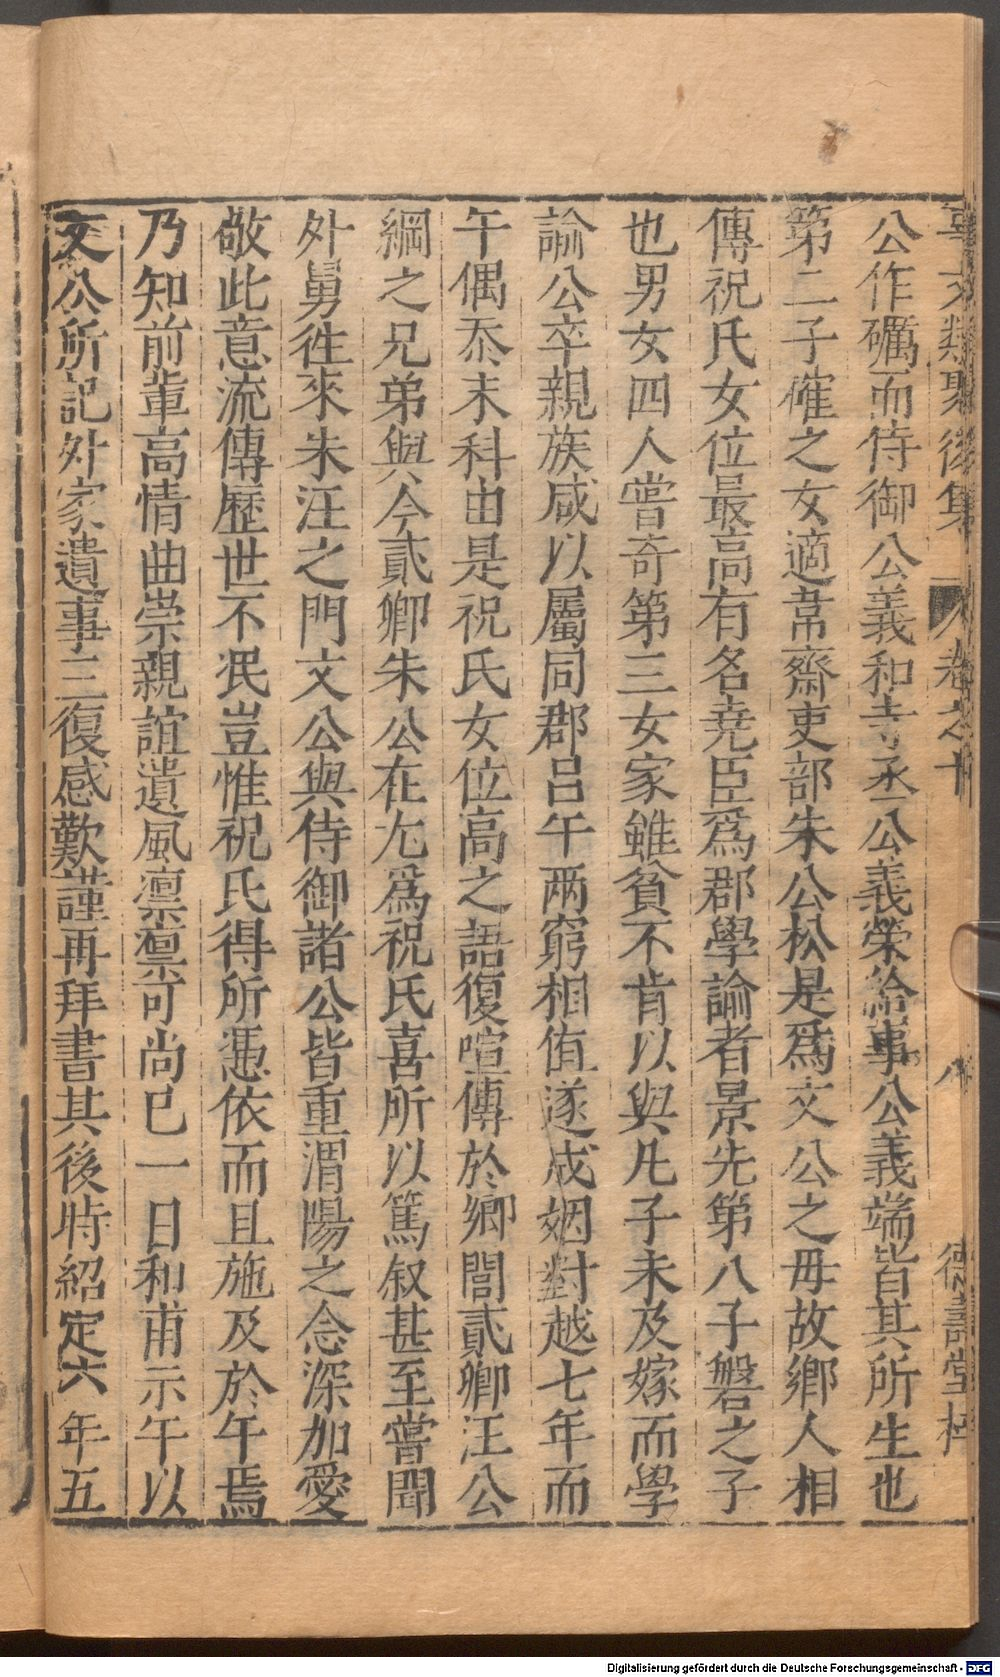 事文類聚後集 卷之十 八 德壽堂梓
公作礪而侍御公義和寺丞公義榮給事公義端皆其所生也
第二子確之女適韋齋吏部朱公松是爲文公之毋故鄉人相
傳祝氏女位最高有名堯臣爲郡學論者景先第八子磐之子
也男女四人嘗奇第三女家雖貧不肯以與凡子未及嫁而學
諭公卒親族咸以屬同郡呂午兩窮相值遂成姻對越七年而
午偶忝末科由是祝氏女位高之語復喧傳於鄉閭貳卿汪公
綱之兄弟與今貳卿朱公在尤爲祝氏喜所以篤叙甚至嘗聞
外舅徃來朱汪之門文公與侍御諸公皆重渭陽之念深加愛
敬此意流傳歷世不泯豈惟祝氏得所憑依而且施及於午焉
乃知前輩高情曲崇親誼遺風凛凛可尚已一日和甫示午以
文公所記外家遺事三復感歎謹再拜書其後時紹定六年五
Digitalisierung gefördert durch die Deutsche Forschungsgemeinschaft - DFG